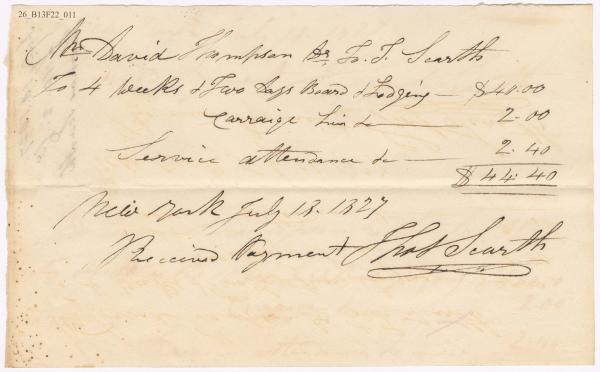 26_B13F22_011
Mr. David Thompson Dr. To. T. Scarth
To 4 Weeks & Two Days Board & Lodging — $40.00
Carraige hire do — 2.00
Service attendance do — 2.40
$44.40
New York July 13. 1827
Received Payment Thos Scarth